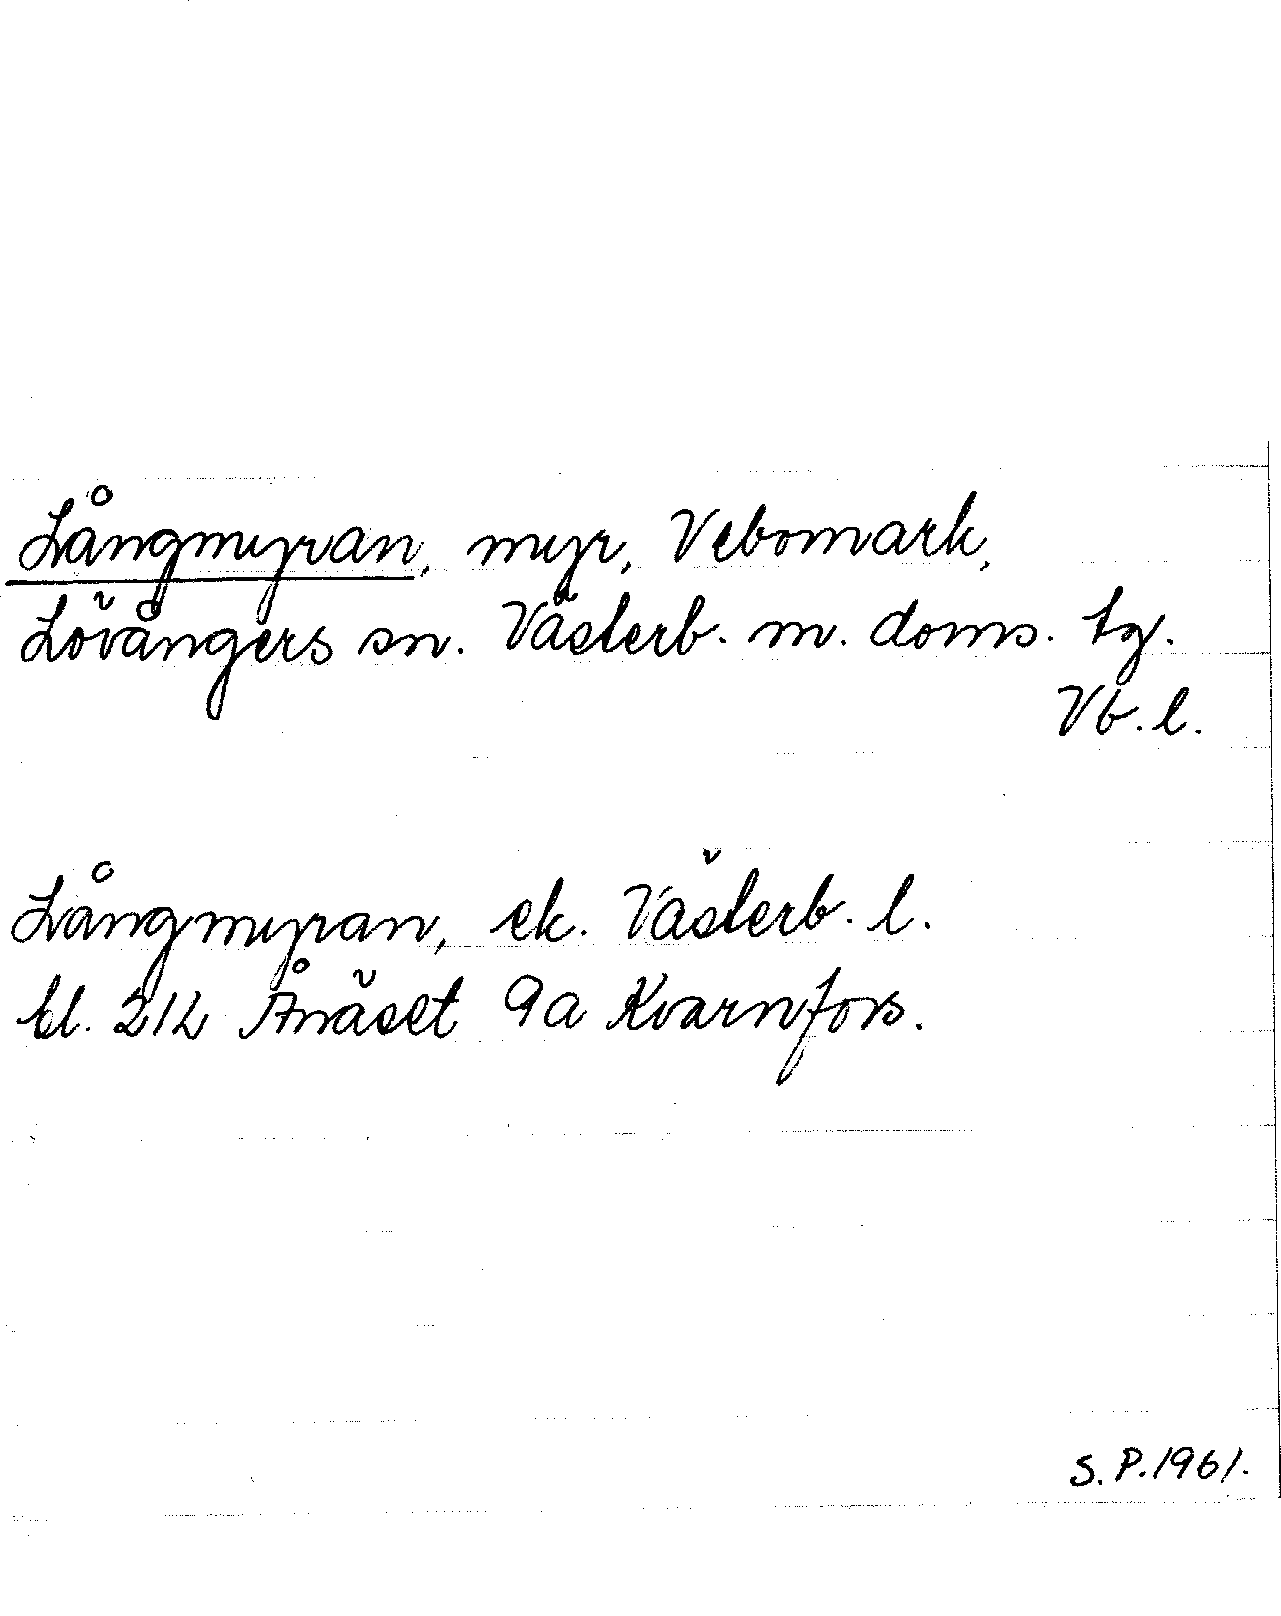 Långmyran, myr, Vebomark,
Lövångers sn. Västerb. m. doms. tg.
Vb. l.
Långmyran, ek. Västerb. l.
bl. 21L Ånäset 9a Kvarnfors.
S.P. 1961.